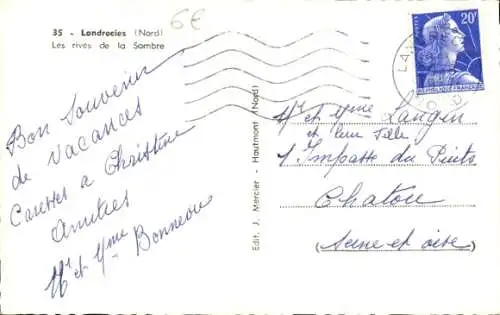 35 - Landrecies (Nord)
Les rives de la Sambre
6€
Bon Souvenir
de Vacances
Caresses a Christine
Amities
Mr et Mme Bonneau
Edit. J. Mercier - Hautmont (Nord)
20F
POSTES
REPUBLIQUE FRANÇAISE
Mr et Mme Langin
et leur fille
1 Impasse du Puits
Chatou
(Seine et oise)